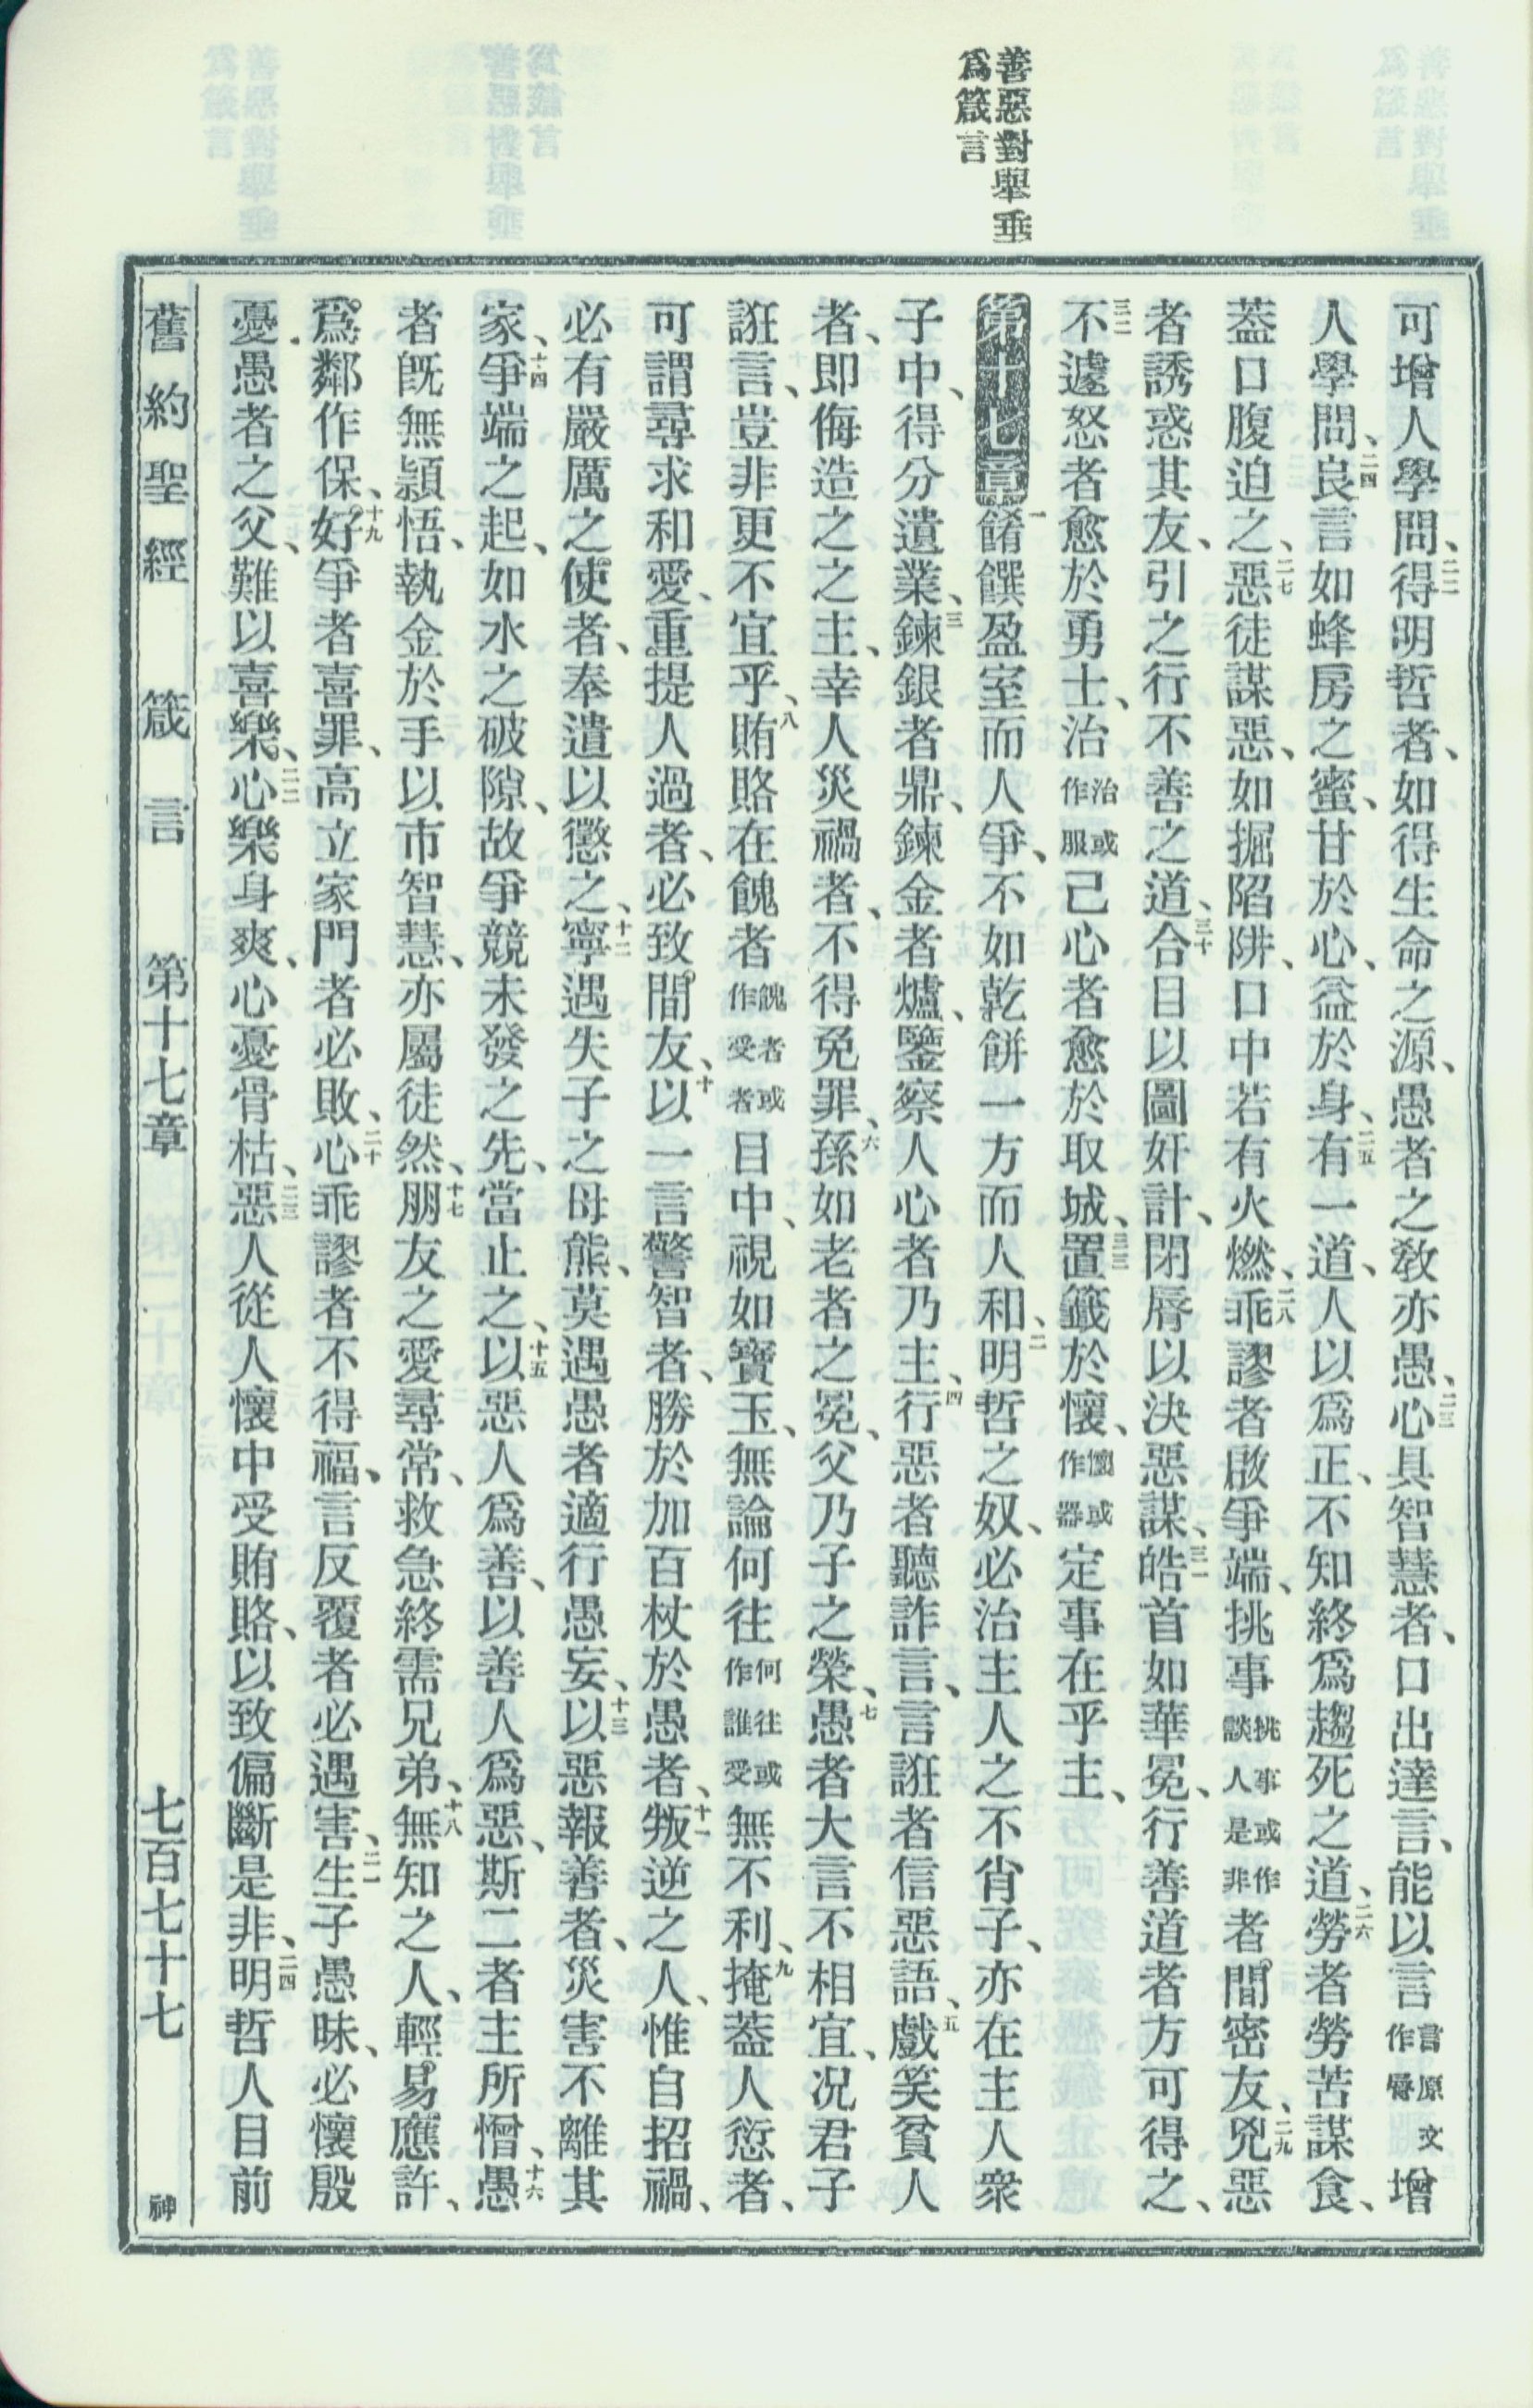 善惡對舉垂
爲箴言
可增人學問、二二得明哲者、如得生命之源、愚者之敎亦愚、二三心具智慧者、口出達言、能以言言原文作脣增
人學問、二四良言如蜂房之蜜、甘於心、益於身、二五有一道、人以爲正、不知終爲趨死之道、二六勞者勞苦謀食、
蓋口腹迫之、二七惡徒謀惡、如掘陷阱、口中若有火燃、二八乖謬者啟爭端、挑事挑事或作談人是非者間密友、二九兇惡
者誘惑其友、引之行不善之道、三十合目以圖奸計、閉脣以決惡謀、三一皓首如華冕、行善道者方可得之、
三二不遽怒者愈於勇士、治治或作服己心者愈於取城、三三置籤於懷、懷或作器定事在乎主、
第十七章 一餚饌盈室而人爭、不如乾餅一方而人和、二明哲之奴、必治主人之不肖子、亦在主人衆
子中、得分遺業、三鍊銀者鼎、鍊金者爐、鑒察人心者乃主、四行惡者聽詐言、言誑者信惡語、五戲笑貧人
者、即侮造之之主、幸人災禍者、不得免罪、六孫如老者之冕、父乃子之榮、七愚者大言不相宜、况君子
誑言、豈非更不宜乎、八賄賂在餽者餽者或作受者目中、視如寶玉、無論何往何往或作誰受無不利、九掩蓋人愆者、
可謂尋求和愛、重提人過者、必致間友、十以一言警智者、勝於加百杖於愚者、十一叛逆之人、惟自招禍、
必有嚴厲之使者、奉遣以懲之、十二寧遇失子之母熊、莫遇愚者適行愚妄、十三以惡報善者、災害不離其
家、十四爭端之起、如水之破隙、故爭競未發之先、當止之、十五以惡人爲善、以善人爲惡、斯二者主所憎、十六愚
者旣無穎悟、執金於手以市智慧、亦屬徒然、十七朋友之愛尋常、救急終需兄弟、十八無知之人、輕易應許、
爲鄰作保、十九好爭者喜罪、高立家門者必敗、二十心乖謬者不得福、言反覆者必遇害、二一生子愚昧、必懷殷
憂、愚者之父、難以喜樂、二二心樂身爽、心憂骨枯、二三惡人從人懷中受賄賂、以致偏斷是非、二四明哲人目前
舊約聖經 箴言 第十七章 七百七十七 神